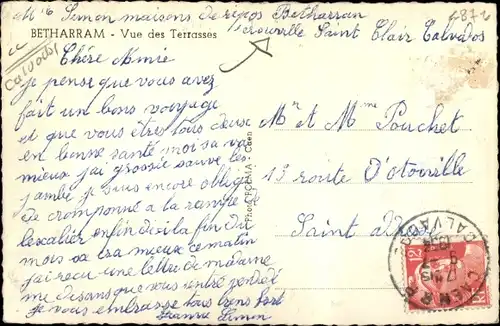 Mlle Simon maisons de repos Betharran
Hérouville Saint Clair Calvados
BETHARRAM - Vue des Terrasses
Calvados
Chére Amie
je pense que vous avez
fait un bons voyage
et que vous êtres tous deux
en bonne santé moi sa va
mieux j'ai grossie sauve les
jambe je suis encore obligé
De cramponné a la rampe de
l'escalier enfin d'isi la fin du
mois sa ira mieux ce matin
j'ai reçu une lettre de marraine
me disans que vous
je vous embrasse tous bons fort
Simon
Mr et Mme Pouchet
13 route D'otonville
Saint
Photo FORMA - Caen
CAEN R.P.
CALVADOS